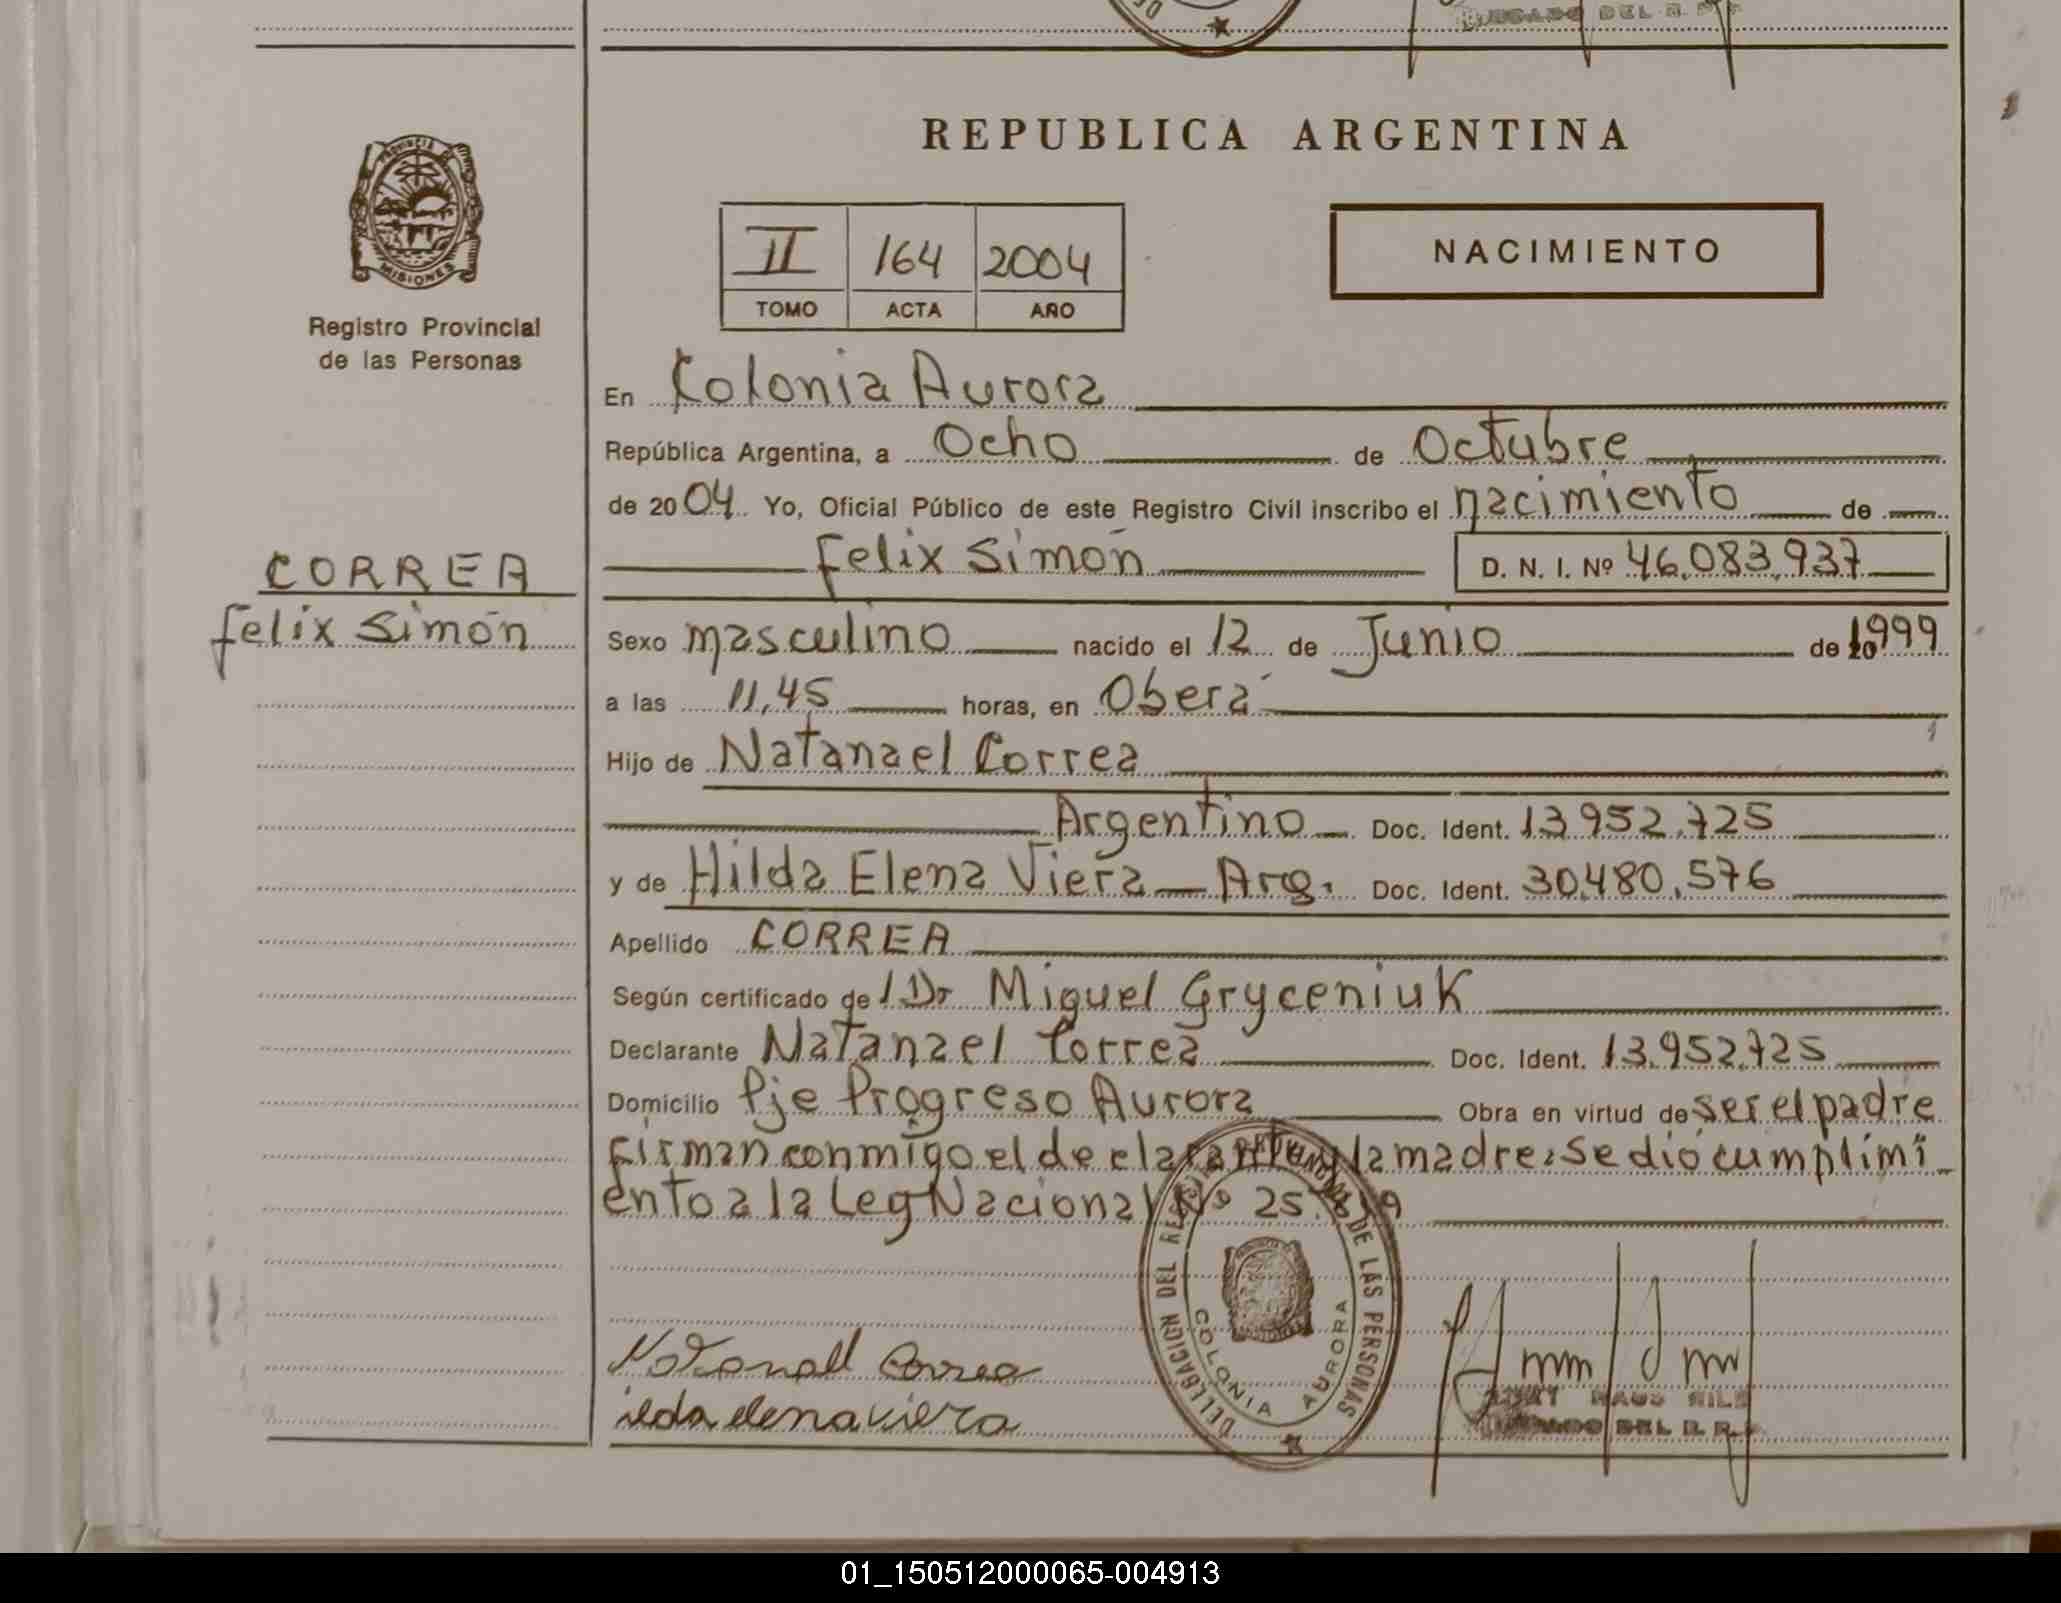 REPUBLICA ARGENTINA
PROVINCIA DE
MISIONES
Registro Provincial
de las Personas
II 164 2004
TOMO ACTA AÑO
NACIMIENTO
En Colonia Aurora
República Argentina, a Ocho de Octubre
de 2004 Yo, Oficial Público de este Registro Civil inscribo el nacimiento de
Felix Simón D. N. I. Nº 46.083.937
CORREA
Felix Simón
Sexo masculino nacido el 12 de Junio de 1999
a las 11,45 horas, en Oberá
Hijo de Natanael Correa
Argentino Doc. Ident. 13.952.725
y de Hilda Elena Viera Arg. Doc. Ident. 30.480.576
Apellido CORREA
Según certificado del Dr Miguel Gryceniuk
Declarante Natanael Correa Doc. Ident. 13.952.725
Domicilio Pje Progreso Aurora Obra en virtud de ser el padre
Firman conmigo el declarante y la madre: se dió cumplimi
ento a la Ley Nacional Nº 25.
DELEGACION DEL DE LAS PERSONAS
COLONIA AURORA
Natanael Correa
ilda elena viera
DEL R. P.
01_150512000065-004913